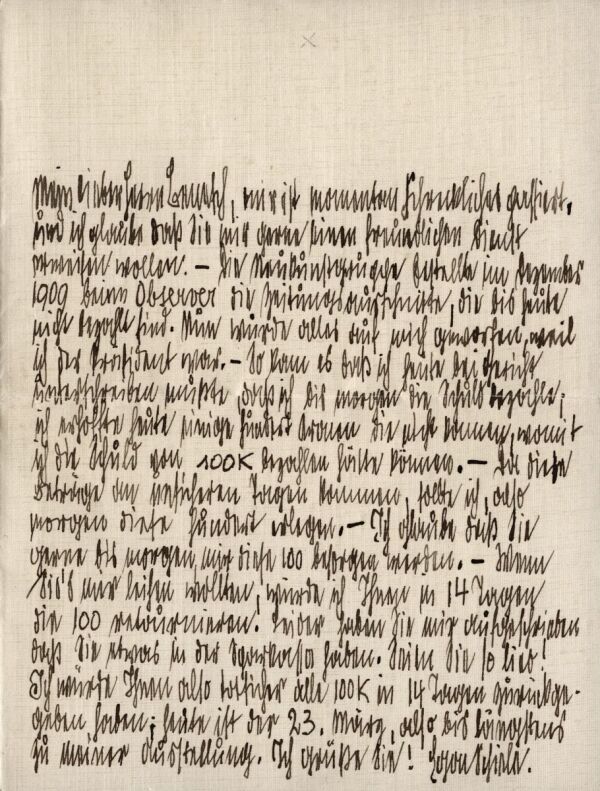 Mein lieber Herr Benesch, mir ist momentan Schreckliches passiert.
und ich glaube daß Sie mir gerne einen freundlichen Dienst
erweisen wollen. – Die Neukunstgruppe bestellte im Dezember
1909 beim Observer die Zeitungsausschnitte, die bis heute
nicht bezahlt sind. Nun wurde alles auf mich geworfen, weil
ich der Präsident war. – So kam es daß ich heute bei Gericht
unterschreiben mußte, daß ich bis morgen die Schuld bezahle;
ich erhoffte heute einige hundert Kronen die nicht kommen, womit
ich die Schuld von 100K bezahlen hätte können. – Da diese
Beträge in Tagen kommen, sollte ich also
morgen diese hundert erlegen. – Ich glaube daß Sie
gerne bis morgen mir diese 100 besorgen werden. – Wenn
Sie's mir leihen wollten, würde ich Ihnen in 14 Tagen
die 100 retournieren. Leider haben Sie mir aufgeschrieben
daß Sie etwas in der Sparkassa haben. Seien Sie so lieb!
Ich würde Ihnen also alle 100K in 14 Tagen zurückge-
geben haben; heute ist der 23. März, also bis längstens
zu meiner Ausstellung. Ich grüße Sie! Egon Schiele.